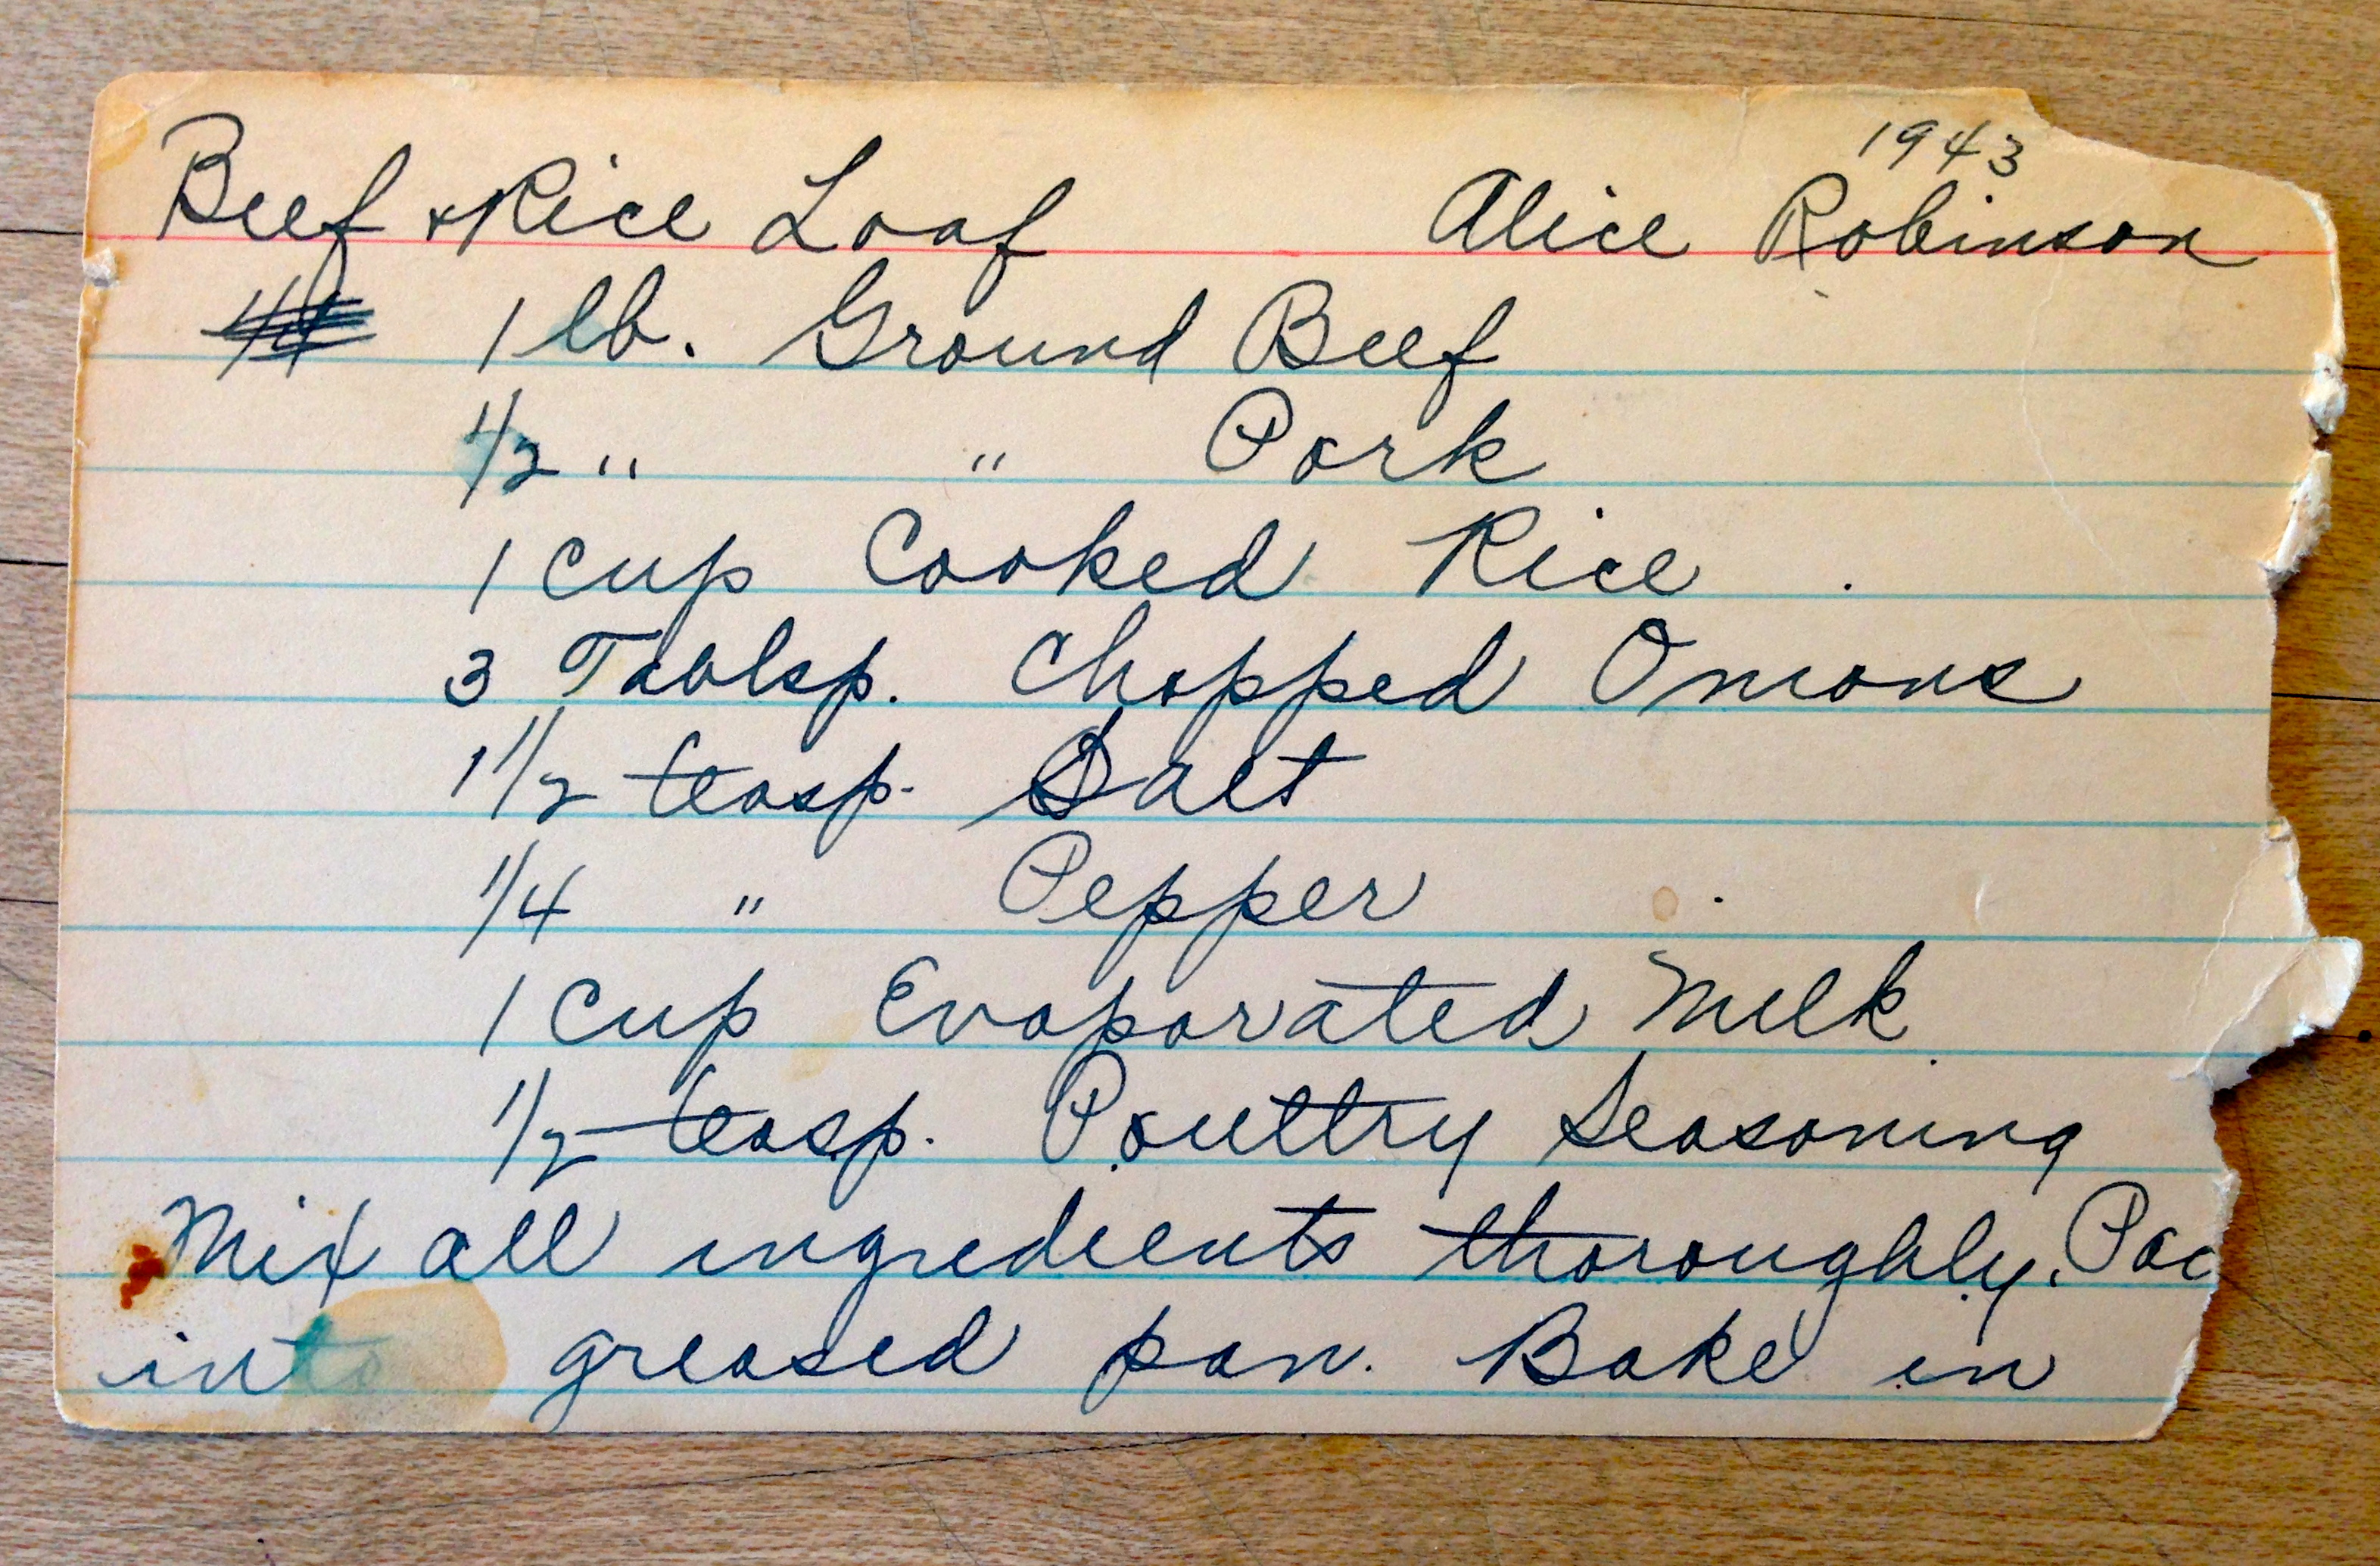 1943
Beef & Rice Loaf Alice Robinson
1 lb. Ground Beef
1/2 " " Pork
1 Cup Cooked Rice
3 Tablsp. Chopped Onions
1 1/2 teasp. Salt
1/4 " Pepper
1 Cup Evaporated Milk
1/2 teasp. Poultry Seasoning
Mix all ingredients thoroughly. Pac
into greased pan. Bake in